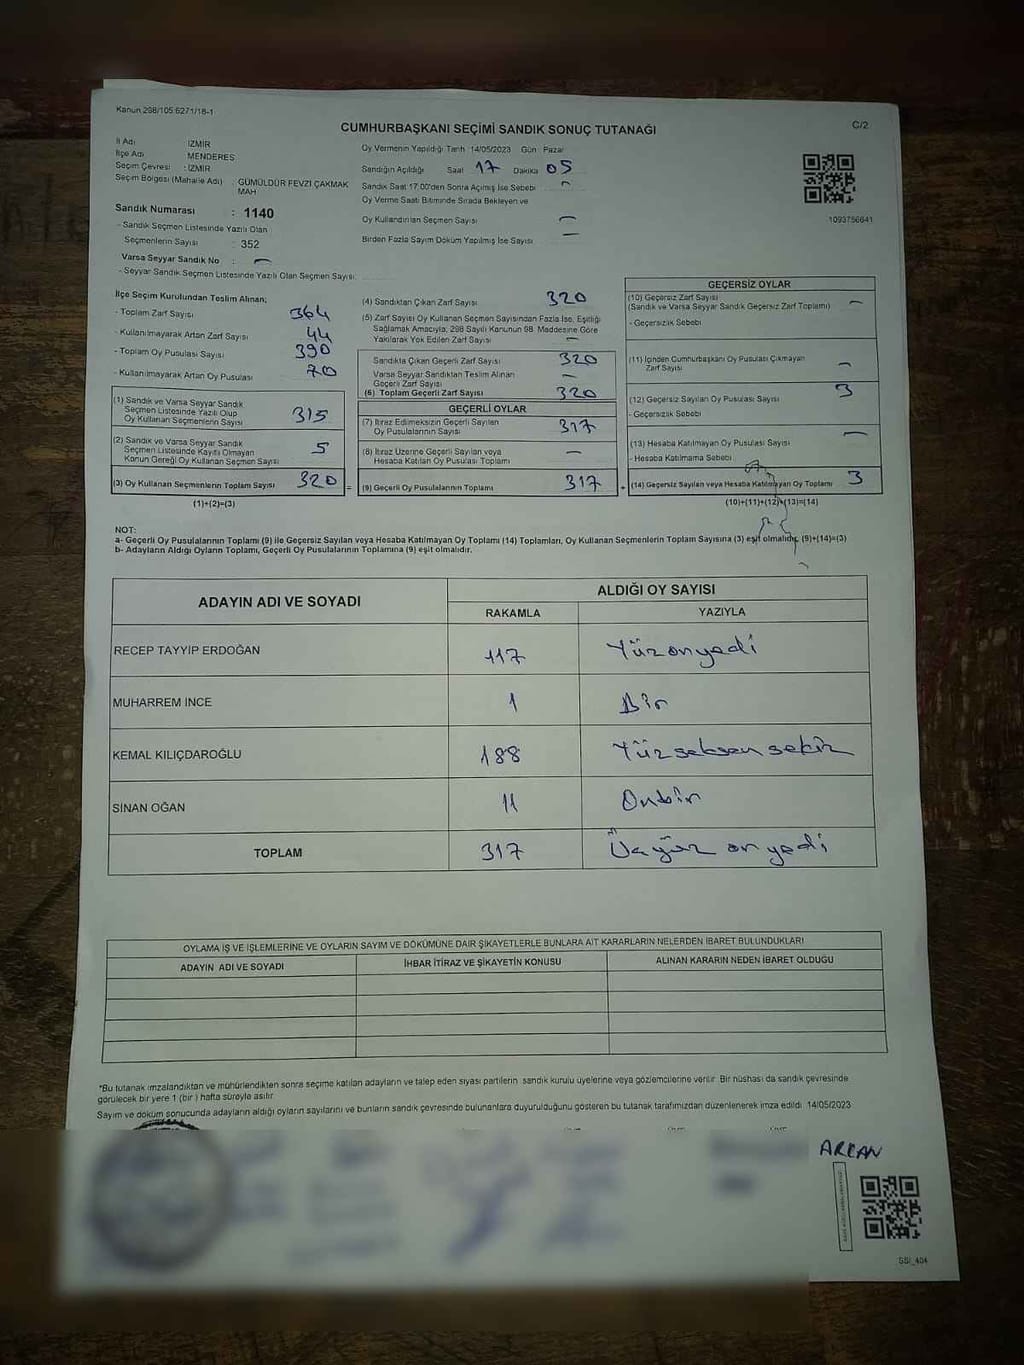 Kanun 298/105 6271/18-1
C/2
CUMHURBAŞKANI SEÇİMİ SANDIK SONUÇ TUTANAĞI
İl Adı : İZMİR
İlçe Adı : MENDERES
Seçim Çevresi : İZMİR
Seçim Bölgesi (Mahalle Adı) : GÜMÜLDÜR FEVZİ ÇAKMAK MAH
Sandık Numarası : 1140
- Sandık Seçmen Listesinde Yazılı Olan
Seçmenlerin Sayısı : 352
Varsa Seyyar Sandık No : -
- Seyyar Sandık Seçmen Listesinde Yazılı Olan Seçmen Sayısı:
Oy Vermenin Yapıldığı Tarih 14/05/2023 Gün : Pazar
Sandığın Açıldığı Saat 17 Dakika 05
Sandık Saat 17.00'den Sonra Açılmış İse Sebebi -
Oy Verme Saati Bitiminde Sırada Bekleyen ve
Oy Kullandırılan Seçmen Sayısı -
Birden Fazla Sayım Döküm Yapılmış İse Sayısı -
1093756641
İlçe Seçim Kurulundan Teslim Alınan;
- Toplam Zarf Sayısı 364
- Kullanılmayarak Artan Zarf Sayısı 44
- Toplam Oy Pusulası Sayısı 390
- Kullanılmayarak Artan Oy Pusulası 70
(1) Sandık ve Varsa Seyyar Sandık
Seçmen Listesinde Yazılı Olup
Oy Kullanan Seçmenlerin Sayısı 315
(2) Sandık ve Varsa Seyyar Sandık
Seçmen Listesinde Kayıtlı Olmayan
Kanun Gereği Oy Kullanan Seçmen Sayısı 5
(3) Oy Kullanan Seçmenlerin Toplam Sayısı 320
(1)+(2)=(3)
(4) Sandıktan Çıkan Zarf Sayısı 320
(5) Zarf Sayısı Oy Kullanan Seçmen Sayısından Fazla İse, Eşitliği
Sağlamak Amacıyla, 298 Sayılı Kanunun 98. Maddesine Göre
Yakılarak Yok Edilen Zarf Sayısı -
Sandıkta Çıkan Geçerli Zarf Sayısı 320
Varsa Seyyar Sandıktan Teslim Alınan
Geçerli Zarf Sayısı -
(6) Toplam Geçerli Zarf Sayısı 320
GEÇERLİ OYLAR
(7) İtiraz Edilmeksizin Geçerli Sayılan
Oy Pusulalarının Sayısı 317
(8) İtiraz Üzerine Geçerli Sayılan veya
Hesaba Katılan Oy Pusulası Toplamı -
= (9) Geçerli Oy Pusulalarının Toplamı 317 +
GEÇERSİZ OYLAR
(10) Geçersiz Zarf Sayısı
(Sandık ve Varsa Seyyar Sandık Geçersiz Zarf Toplamı) -
- Geçersizlik Sebebi
(11) İçinden Cumhurbaşkanı Oy Pusulası Çıkmayan
Zarf Sayısı -
(12) Geçersiz Sayılan Oy Pusulası Sayısı 3
- Geçersizlik Sebebi
(13) Hesaba Katılmayan Oy Pusulası Sayısı -
- Hesaba Katılmama Sebebi
(14) Geçersiz Sayılan veya Hesaba Katılmayan Oy Toplamı 3
(10)+(11)+(12)+(13)=(14)
NOT:
a- Geçerli Oy Pusulalarının Toplamı (9) ile Geçersiz Sayılan veya Hesaba Katılmayan Oy Toplamı (14) Toplamları, Oy Kullanan Seçmenlerin Toplam Sayısına (3) eşit olmalıdır. (9)+(14)=(3)
b- Adayların Aldığı Oyların Toplamı, Geçerli Oy Pusulalarının Toplamına (9) eşit olmalıdır.
ADAYIN ADI VE SOYADI
ALDIĞI OY SAYISI
RAKAMLA YAZIYLA
RECEP TAYYİP ERDOĞAN 117 Yüzonyedi
MUHARREM İNCE 1 Bir
KEMAL KILIÇDAROĞLU 188 Yüzseksensekiz
SİNAN OĞAN 11 Onbir
TOPLAM 317 Üçyüz onyedi
OYLAMA İŞ VE İŞLEMLERİNE VE OYLARIN SAYIM VE DÖKÜMÜNE DAİR ŞİKAYETLERLE BUNLARA AİT KARARLARIN NELERDEN İBARET BULUNDUKLARI
ADAYIN ADI VE SOYADI İHBAR İTİRAZ VE ŞİKAYETİN KONUSU ALINAN KARARIN NEDEN İBARET OLDUĞU
*Bu tutanak imzalandıktan ve mühürlendikten sonra seçime katılan adayların ve talep eden siyasi partilerin sandık kurulu üyelerine veya gözlemcilerine verilir. Bir nüshası da sandık çevresinde
görülecek bir yere 1 (bir) hafta süreyle asılır.
Sayım ve döküm sonucunda adayların aldığı oyların sayılarını ve bunların sandık çevresinde bulunanlara duyurulduğunu gösteren bu tutanak tarafımızdan düzenlenerek imza edildi. 14/05/2023
ARCAN
SSI_404